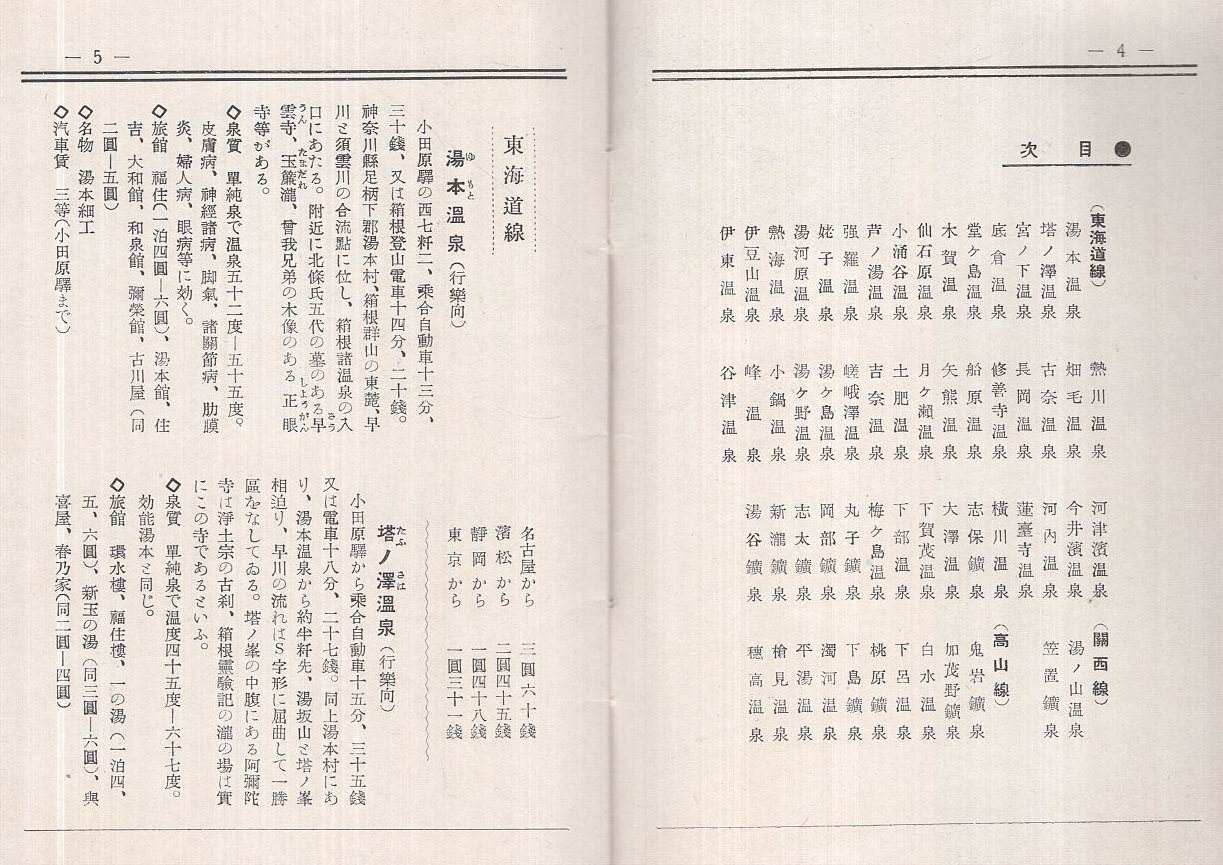 — 4 —
●目次
（東海道線）
湯本温泉
塔ノ澤温泉
宮ノ下温泉
底倉温泉
堂ヶ島温泉
木賀温泉
仙石原温泉
小涌谷温泉
芦ノ湯温泉
强羅温泉
姥子温泉
湯河原温泉
熱海温泉
伊豆山温泉
伊東温泉
熱川温泉
畑毛温泉
古奈温泉
長岡温泉
修善寺温泉
船原温泉
矢熊温泉
月ヶ瀨温泉
土肥温泉
吉奈温泉
嵯峨澤温泉
湯ヶ島温泉
湯ケ野温泉
小鍋温泉
峰温泉
谷津温泉
河津濱温泉
今井濱温泉
河內温泉
蓮臺寺温泉
橫川温泉
志保鑛泉
大澤温泉
下賀茂温泉
下部温泉
梅ケ島温泉
丸子鑛泉
岡部鑛泉
志太鑛泉
新瀧鑛泉
湯谷鑛泉
（關西線）
湯ノ山温泉
笠置鑛泉
（高山線）
鬼岩鑛泉
加茂野鑛泉
白水温泉
下呂温泉
桃原鑛泉
下島鑛泉
濁河温泉
平湯温泉
槍見温泉
穗高温泉
— 5 —
東海道線
湯本温泉（行樂向）
ゆもと
小田原驛の西七粁二、乘合自動車十三分、
三十錢、又は箱根登山電車十四分、二十錢。
神奈川縣足柄下郡湯本村、箱根群山の東麓、早
川と須雲川の合流點に位し、箱根諸温泉の入
口にあたる。附近に北條氏五代の墓のある早
さう
雲寺、玉簾瀧、曾我兄弟の木像のある正眼
うん たまだれ しようがん
寺等がある。
◇泉質 單純泉で温泉五十二度—五十五度。
皮膚病、神經諸病、脚氣、諸關節病、肋膜
炎、婦人病、眼病等に効く。
◇旅館 福住（一泊四圓—六圓）、湯本館、住
吉、大和館、和泉館、彌榮館、古川屋（同
二圓—五圓）
◇名物 湯本細工
◇汽車賃 三等（小田原驛まで）
名古屋から 三圓六十錢
濱松から 二圓四十五錢
靜岡から 一圓四十八錢
東京から 一圓三十一錢
塔ノ澤温泉（行樂向）
たふ さは
小田原驛から乘合自動車十五分、三十五錢
又は電車十八分、二十七錢。同上湯本村にあ
り、湯本温泉から約半粁先、湯坂山と塔ノ峯
相迫り、早川の流れはS字形に屈曲して一勝
區をなしてゐる。塔ノ峯の中腹にある阿彌陀
寺は淨土宗の古刹、箱根靈驗記の瀧の場は實
にこの寺であるといふ。
◇泉質 單純泉で温度四十五度—六十七度。
効能湯本と同じ。
◇旅館 環水樓、福住樓、一の湯（一泊四、
五、六圓）、新玉の湯（同三圓—六圓）、與
喜屋、春乃家（同二圓—四圓）